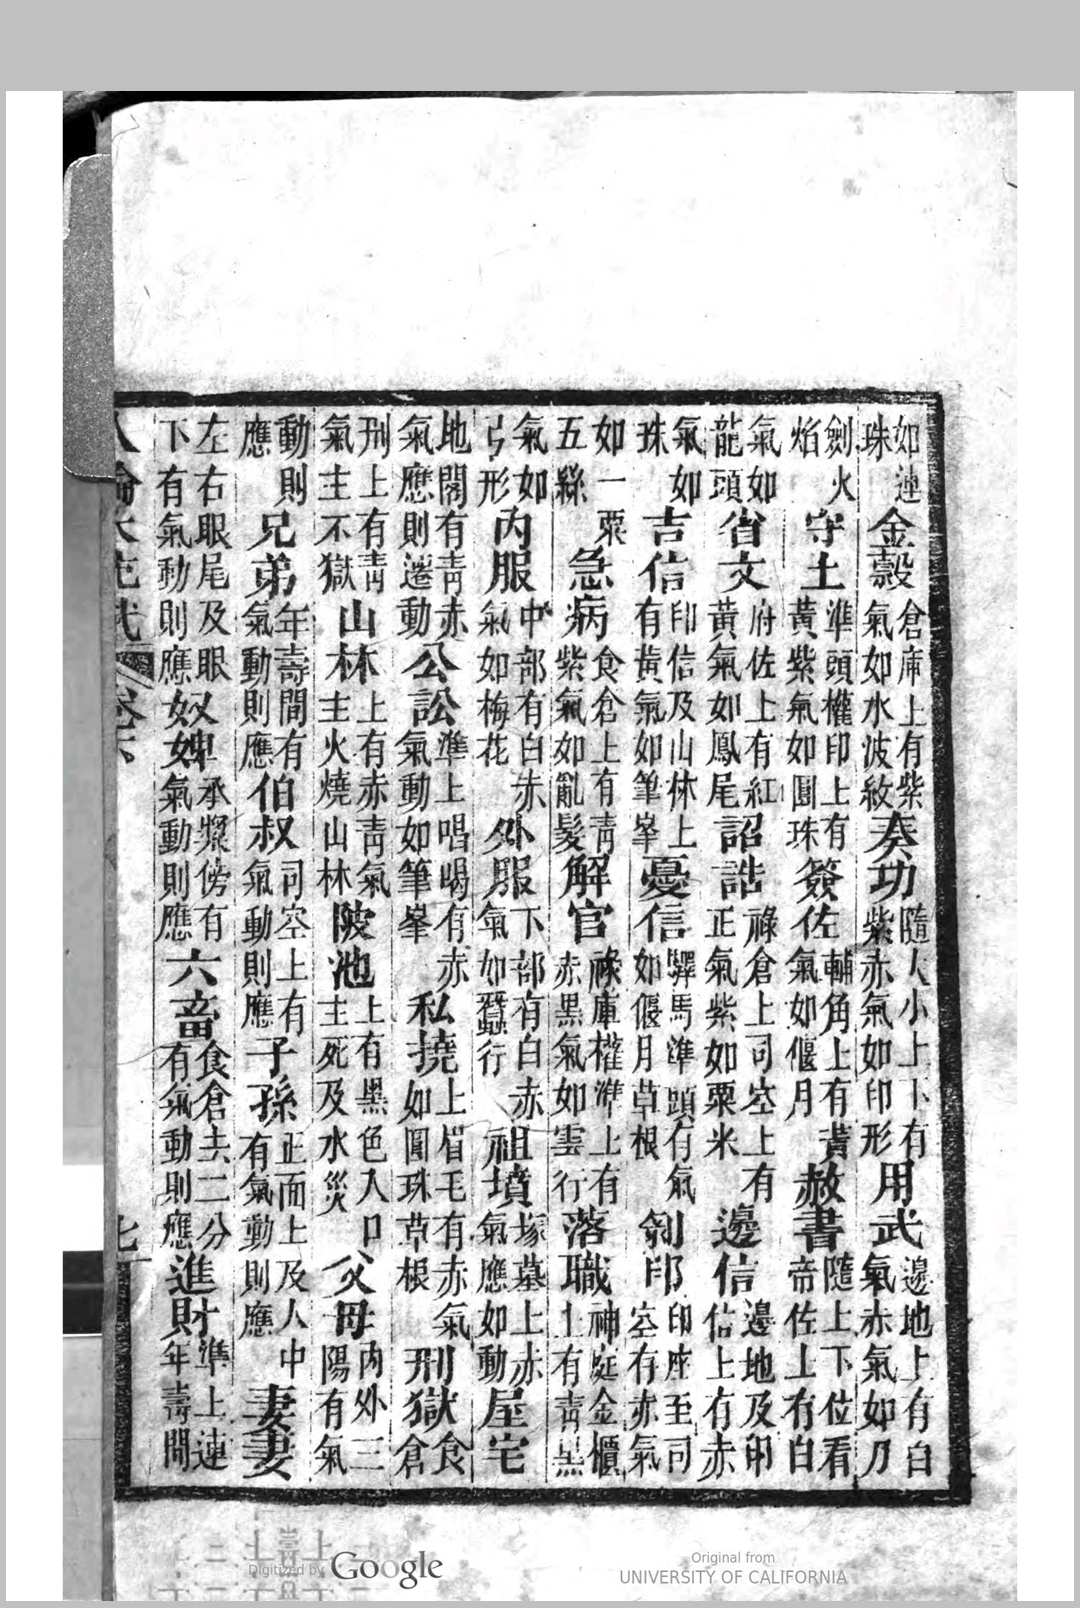 如連珠金穀倉庫上有紫氣如水波紋奏功隨人小上下有紫赤氣如印形用武邊地上有白氣赤氣如刀
劍火焰守土準頭權印上有黃紫氣如圓珠簽佐輔角上有黃氣如偃月赦書隨上下位看帝佐上有白
氣如龍頭省文府佐上有紅黃氣如鳳尾詔誥祿倉上司空上有正氣紫如粟米邊信邊地及印信上有赤
氣如珠吉信印信及山林上有黃氣如筆峯憂信驛馬準頭有氣如偃月草根剜印印座至司空有赤氣
如一粟五絲急病食倉上有青紫氣如亂髮解官祿庫權準上有赤黑氣如雲行落職神庭金櫃上有青黑
氣如弓形內服中部有白赤氣如梅花外服下部有白赤氣如蠶行祖墳塚墓上赤氣應如動屋宅
地閣有青赤氣應則遷動公訟準上唱喝有赤氣動如筆峯私撓上眉毛有赤氣如圓珠草根刑獄食倉
刑上有青氣主不獄山林上有赤青氣主火燒山林陂池上有黑色入口主死及水災父母內外三陽有氣
動則應兄弟年壽間有氣動則應伯叔司空上有氣動則應子孫正面上及人中有氣動則應妻妻
左右眼尾及眼下有氣動則應奴婢承漿傍有氣動則應六畜食倉主二分有氣動則應進財準上連年壽間
人倫大統卷六 七
Digitized by Google
Original from
UNIVERSITY OF CALIFORNIA